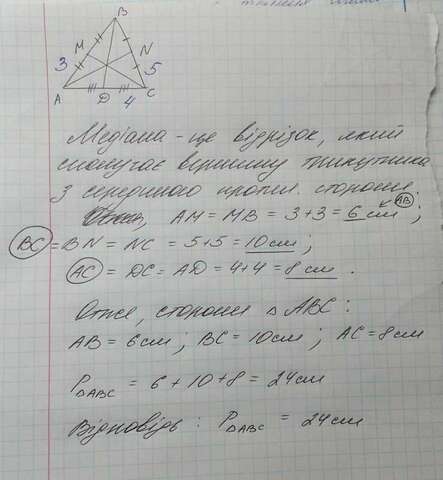 B
M N
3 5
A D 4 C
Медіана - це відрізок, який
сполучає вершину трикутника
з серединою против. сторони.
AM = MB = 3+3 = 6 см ; AB
BC = BN = NC = 5+5 = 10 см ;
AC = DC = AD = 4+4 = 8 см .
Отже, сторони △ ABC :
AB = 6 см ; BC = 10 см ; AC = 8 см
P△ABC = 6 + 10 + 8 = 24 см
Відповідь : P△ABC = 24 см